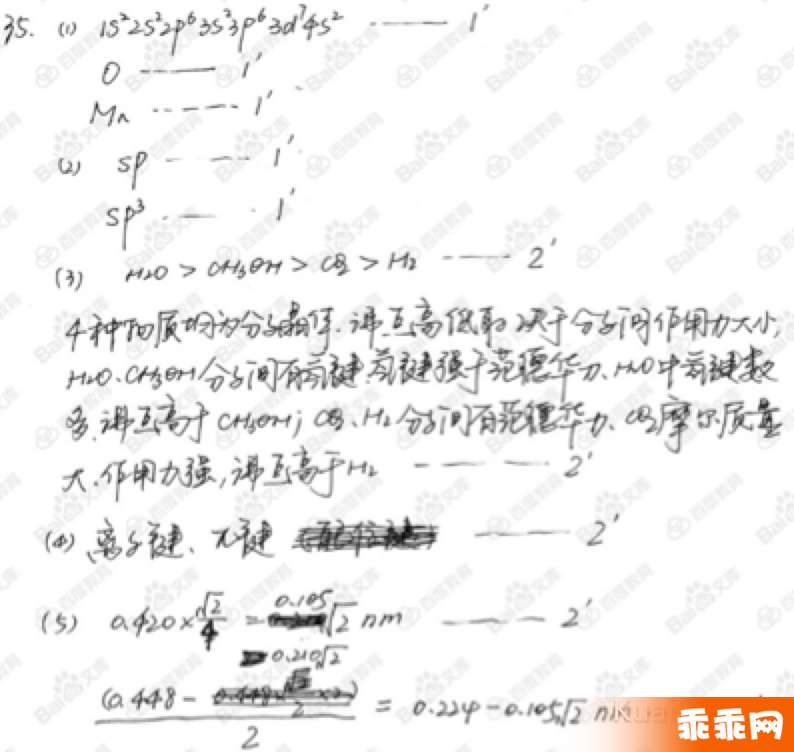 35. (1) 1s²2s²2p⁶3s²3p⁶3d⁷4s² —— 1'
O —— 1'
Mn ------ 1'
(2) sp —— 1'
sp³ —— 1'
(3) H2O > CH3OH > CO2 > H2 —— 2'
4种物质均为分子晶体.沸点高低取决于分子间作用力大小,
H2O、CH3OH分子间有氢键,氢键强于范德华力.H2O中氢键数
多,沸点高于CH3OH; CO2、H2分子间有范德华力、CO2摩尔质量
大.作用力强,沸点高于H2 ———— 2'
(4) 离子键、π键 —— 2'
(5) 0.420×√2/4 = 0.105√2 nm —— 2'
0.210√2
(0.448 - )/2 = 0.224-0.105√2 nm
乖乖网
Bai文库
百度教育